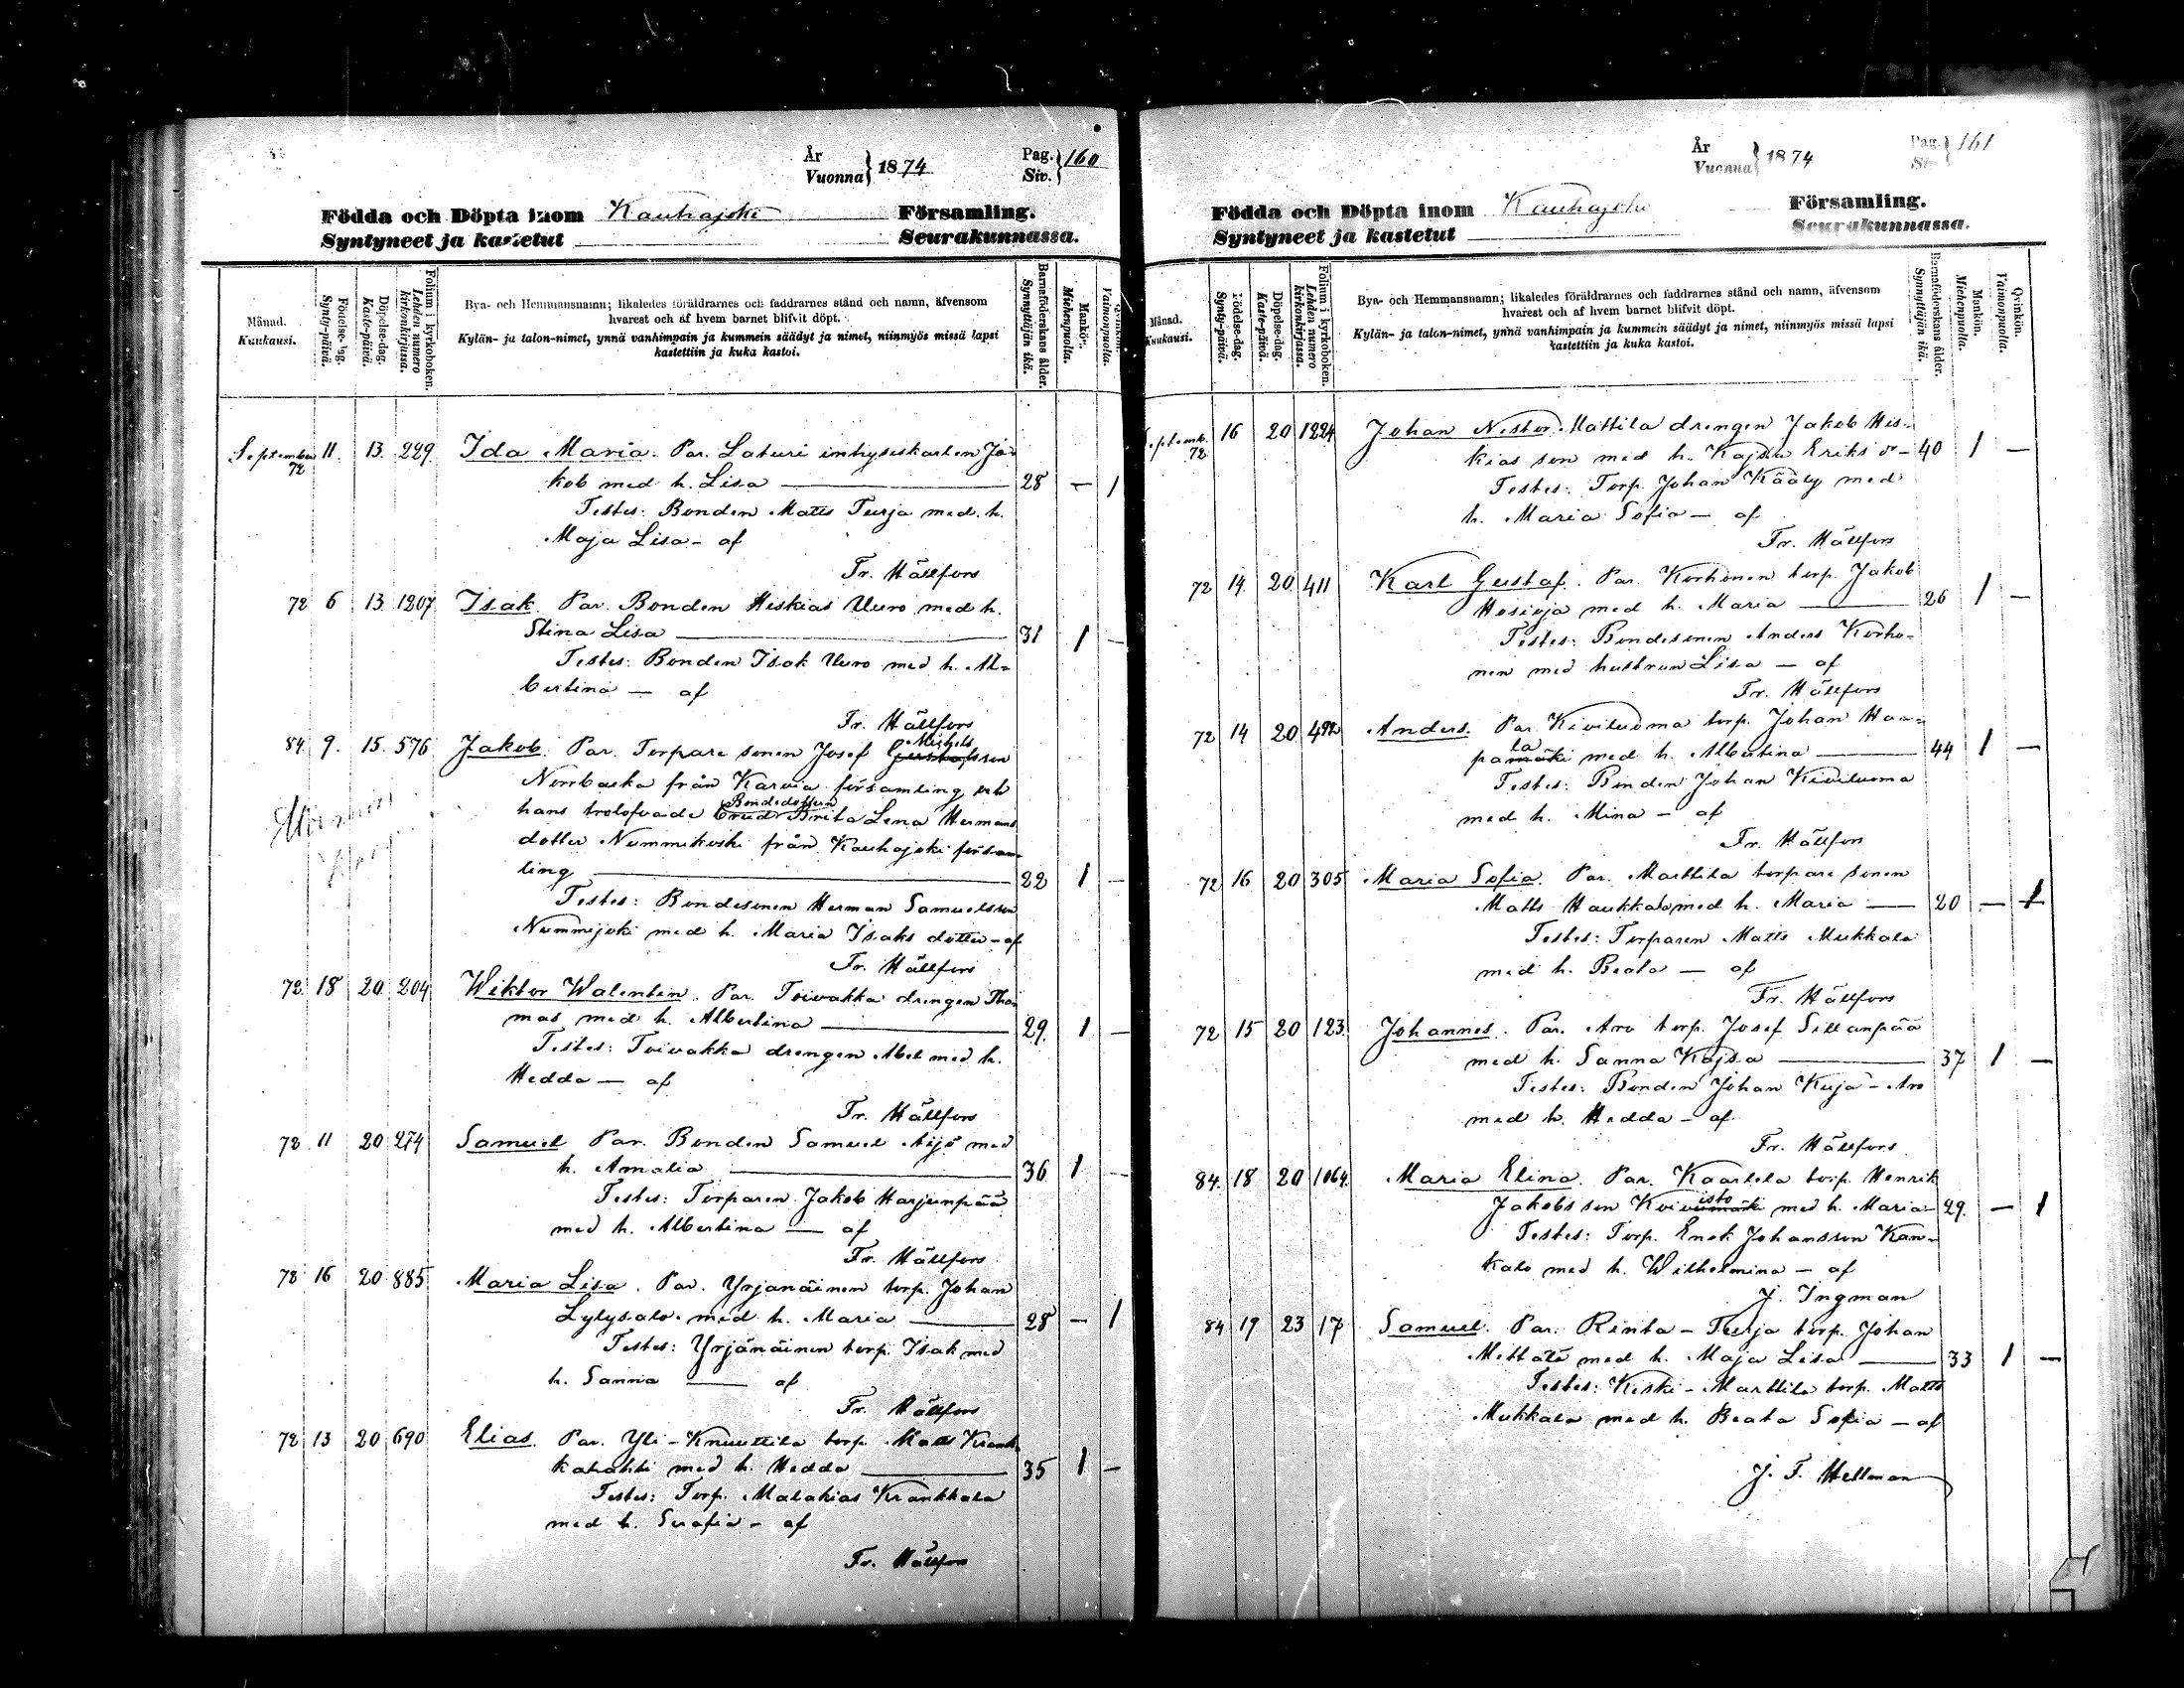 År
Vuonna } 1874
Pag.
Siv. } 160
Födda och Döpta inom Kauhajoki Församling.
Syntyneet ja kastetut Seurakunnassa.
Månad.
Kuukausi.
Födelse-dag.
Synty-päivä.
Döpelse-dag.
Kaste-päivä.
Folium i kyrkoboken.
Lehden numero kirkonkirjassa.
Bya- och Hemmansnamn; likaledes föräldrarnes och faddrarnes stånd och namn, äfvensom
hvarest och af hvem barnet blifvit döpt.
Kylän- ja talon-nimet, ynnä vanhimpain ja kummein säädyt ja nimet, niinmyös missä lapsi
kastettiin ja kuka kastoi.
Barnaföderskans ålder.
Synnyttäjän ikä.
Mankön.
Miehenpuolta.
Qvinkön.
Vaimonpuolta.
September 11. 13. 229. Ida Maria. Par. Laturi inhyseskarlen Ja-
72 kob med h. Lisa — 28 — 1
Testes: Bonden Matts Turja med h.
Maja Lisa - af
Fr. Hällfors
72 6 13. 1207 Isak. Par. Bonden Heskias Uuro med h.
Stina Lisa — 31 1 —
Testes: Bonden Isak Uuro med h. Al-
bertina — af
Fr. Hällfors
84. 9. 15. 576 Jakob. Par. Torpare sonen Josef Michels
Norrbacka från Karvia församling och
hans trolofvade Bondedottern Brita Lena Hermans
dotter Nummikoski från Kauhajoki försam-
ling — 22 1 —
Testes: Bondesonen Herman Samuelsson
Nummijoki med h. Maria Isaks dotter - af
Fr. Hällfors
72. 18 20 204 Wiktor Walentin. Par. Toivakka drengen Tho-
mas med h. Albertina — 29. 1 —
Testes: Toivakka drengen Abel med h.
Hedda — af
Fr. Hällfors
72 11 20 274 Samuel Par. Bonden Samuel Äijö med
h. Amalia — 36 1 —
Testes: Torparen Jakob Harjunpää
med h. Albertina — af
Fr. Hällfors
72 16 20 885 Maria Lisa. Par. Yrjanäinen torp. Johan
Lylysalo med h. Maria — 28 — 1
Testes: Yrjänäinen torp. Isak med
h. Sanna — af
Fr. Hällfors
72 13 20 690 Elias. Par. Yli-Knuuttila torp. Matts Krank-
kalahti med h. Hedda — 35 1 —
Testes: Torp. Malakias Krankkala
med h. Serafia - af
Fr. Hällfors
År
Vuonna } 1874
Pag.
Siv. } 161
Födda och Döpta inom Kauhajoki Församling.
Syntyneet ja kastetut Seurakunnassa.
Månad.
Kuukausi.
Födelse-dag.
Synty-päivä.
Döpelse-dag.
Kaste-päivä.
Folium i kyrkoboken.
Lehden numero kirkonkirjassa.
Bya- och Hemmansnamn; likaledes föräldrarnes och faddrarnes stånd och namn, äfvensom
hvarest och af hvem barnet blifvit döpt.
Kylän- ja talon-nimet, ynnä vanhimpain ja kummein säädyt ja nimet, niinmyös missä lapsi
kastettiin ja kuka kastoi.
Barnaföderskans ålder.
Synnyttäjän ikä.
Mankön.
Miehenpuolta.
Qvinkön.
Vaimonpuolta.
Septemb. 16 20 1224 Johan Nestor. Mattila drengen Jakob His-
72 kias son med h. Kajsa Eriks dr - 40 1 —
Testes: Torp. Johan Kääly med
h. Maria Sofia — af
Fr. Hällfors
72 14 20 411 Karl Gustaf. Par. Korhonen torp. Jakob
Hosioja med h. Maria — 26 1 —
Testes: Bondesonen Anders Korho-
nen med hustrun Lisa — af
Fr. Hällfors
72 14 20 492 Anders. Par. Kiviluoma torp. Johan Haa-
pala med h. Albertina — 44 1 —
Testes: Bonden Johan Kiviluoma
med h. Mina - af
Fr. Hällfors
72 16 20 305 Maria Sofia. Par. Marttila torpare sonen
Matts Haukkala med h. Maria — 20 — 1
Testes: Torparen Matts Mukkala
med h. Beata — af
Fr. Hällfors
72 15 20 123. Johannes. Par. Aro torp. Josef Sillanpää
med h. Sanna Kajsa — 37 1 —
Testes: Bonden Johan Kuja-Aro
med h. Hedda - af
Fr. Hällfors
84. 18 20 1064. Maria Elina. Par. Kaartela torp. Henrik
Jakobsson Koivisto med h. Maria - 29. — 1
Testes: Torp. Enok Johansson Kan-
kalo med h. Wilhelmina - af
J. Ingman
84 19 23 17 Samuel. Par. Rinta-Turja torp. Johan
Mettälä med h. Maja Lisa — 33 1 —
Testes: Keski-Marttila torp. Matts
Mukkala med h. Beata Sofia - af
J. F. Hellman